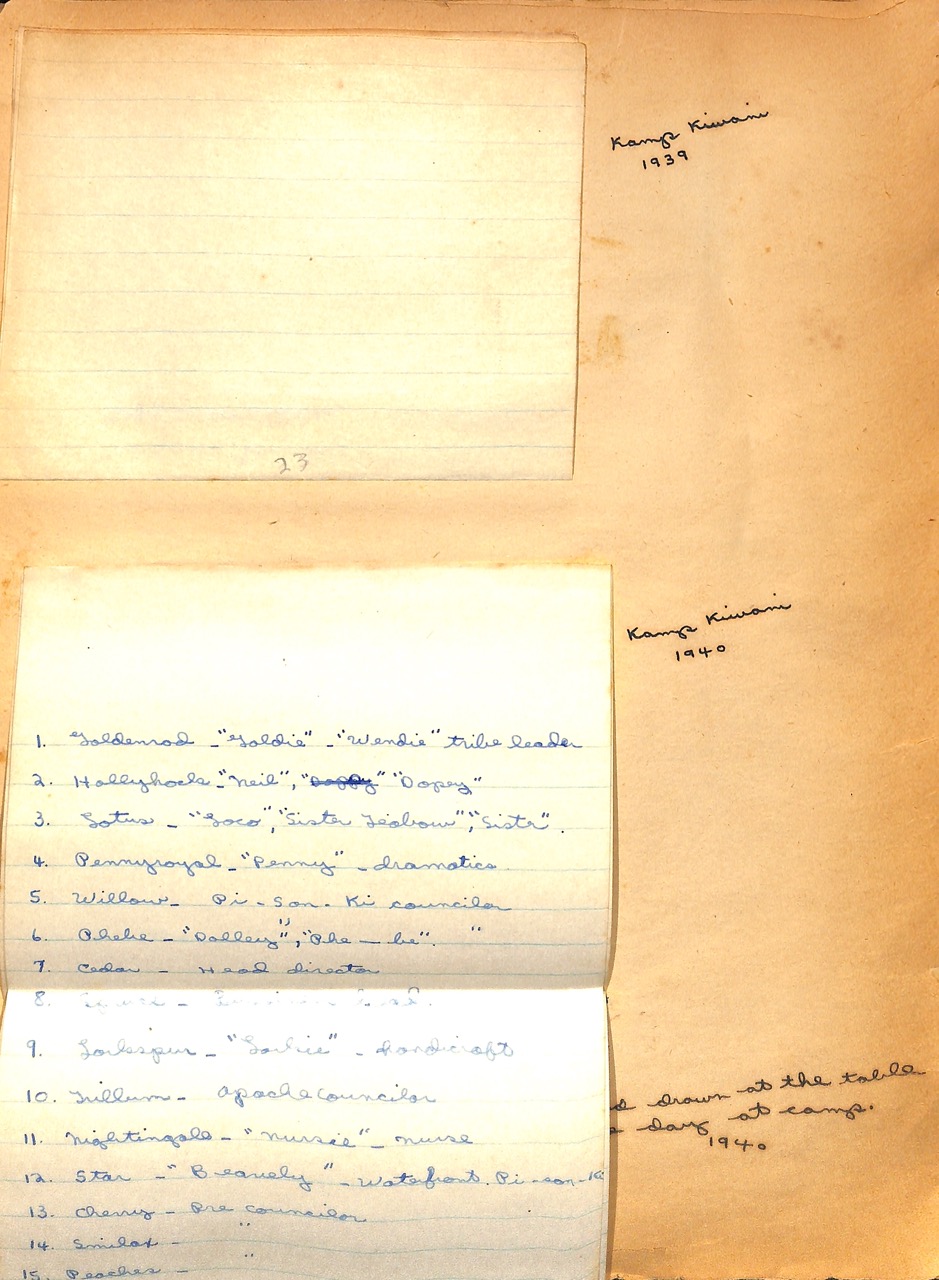 Kamp Kiwani
1939
23
Kamp Kiwani
1940
1. Goldenrod - "Goldie" - "Wendie" tribe leader
2. Hollyhock - "Neil", "Dopey"
3. Lotus - "Loco", "Sister", "Sister".
4. Pennyroyal - "Penny" - dramatics
5. Willow - Pi-Son-Ki councilor
6. Phebe - "Dolley", "Phe-be". "
7. Cedar - Head director
8.
9. Larkspur - "Larkie" - handicraft
10. Trillum - Apache Councilor
11. Nightingale - "Nursie" - nurse
12. Star - "Beavely" - Waterfront. Pi-son-Ki
13. Cherry - Pre councilor
14. Smilax - "
15. Peaches - "
d drawn at the table
s day at camp.
1940